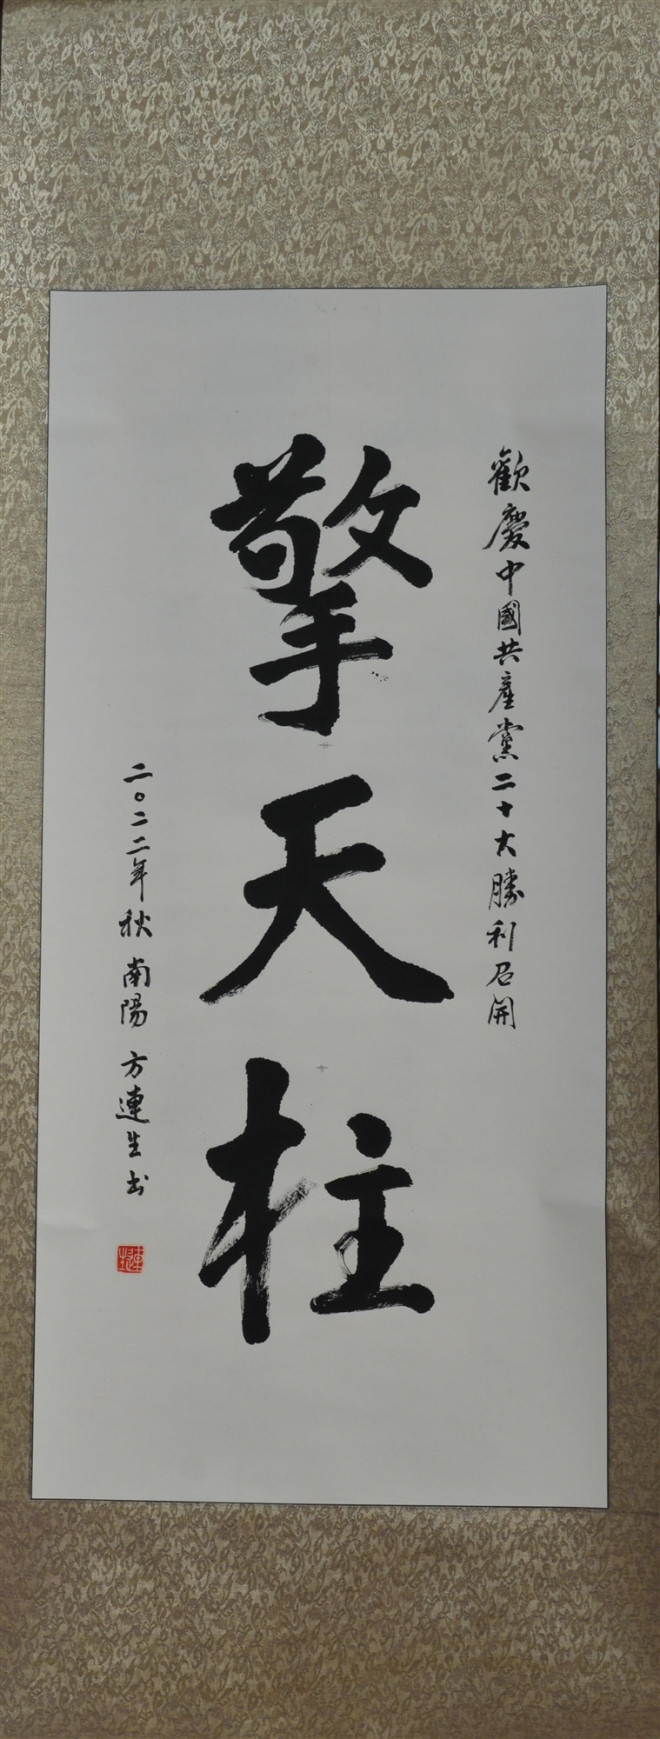 歡慶中國共產黨二十大勝利召開
擎天柱
二〇二二年秋 南陽 方連生书